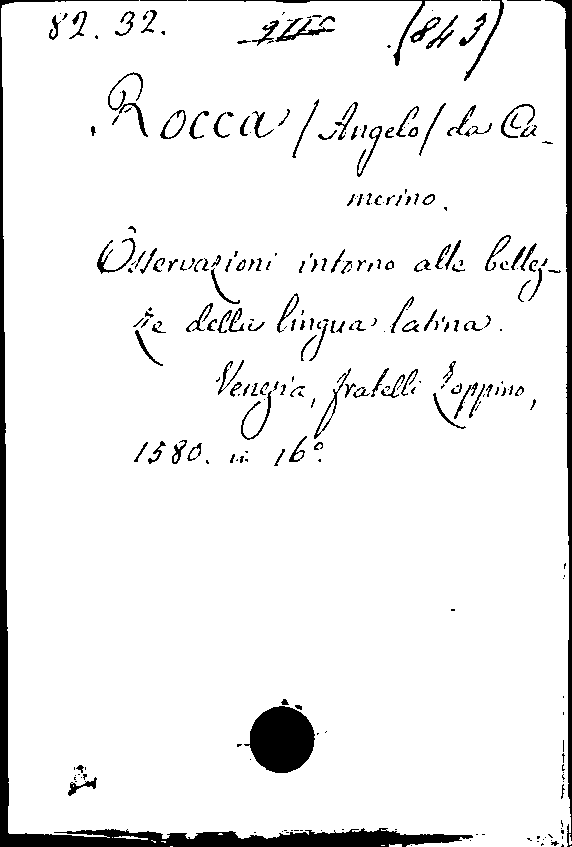 82. 32. (843)
Rocca / Angelo / da Ca-
merino.
Osservazioni intorno alle bellez-
ze della lingua latina.
Venezia, fratelli Zoppino,
1580. in 16º.